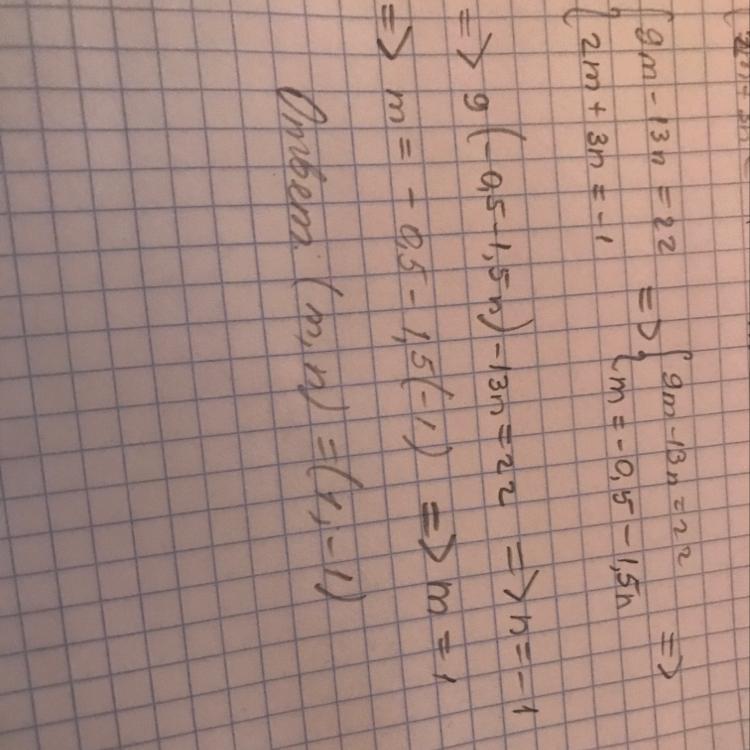 {9m - 13n = 22 => {9m - 13n = 22 =>
{2m + 3n = -1 {m = -0,5 - 1,5n
=> 9(-0,5-1,5n) -13n = 22 => n = -1
=> m = - 0,5 - 1,5(-1) => m = 1
Ответ (m, n) = (1; -1)